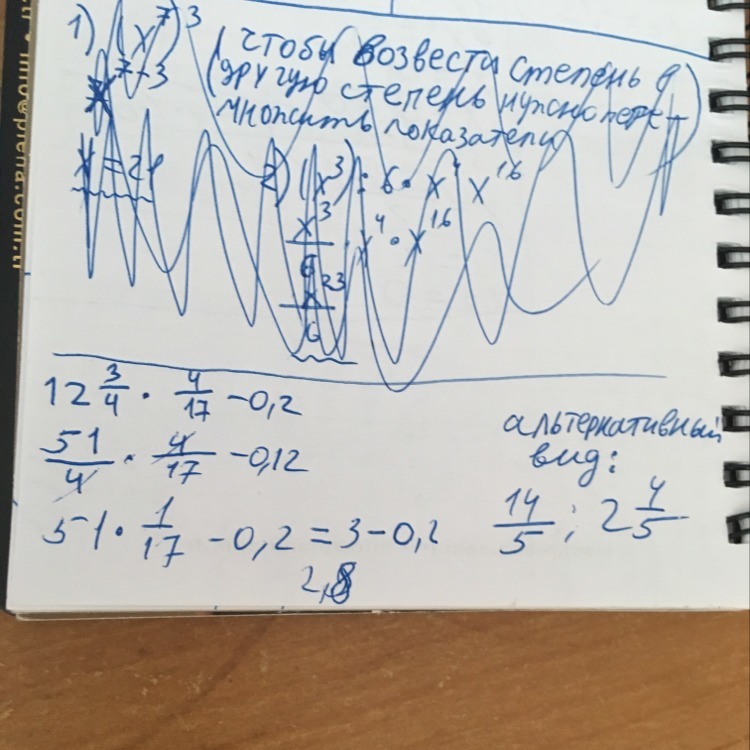 1) (x⁷)³
x⁷·³
x=21
(чтобы возвести степень в
другую степень нужно пере-
множить показатели)
2) (x³) : 6 · x⁴ x¹⁶
x³/6 · x⁴ · x¹⁶
x²³/6
12 3/4 · 4/17 - 0,2
51/4 · 4/17 - 0,12
51 · 1/17 - 0,2 = 3 - 0,2
2,8
альтернативный
вид:
14/5 ; 2 4/5